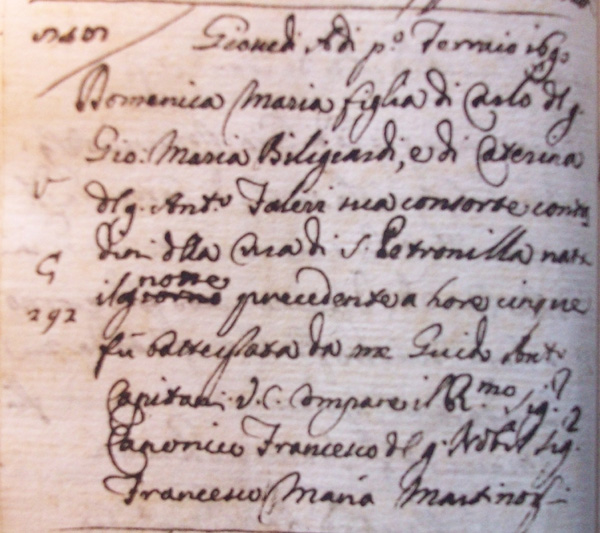 Giovedi Adi p.o Ferraio 1690
Domenica Maria figlia di Carlo del q.
Gio: Maria Biligiardi, e di Caterina
del q. Ant.o Faleri sua consorte conta
dini della Cura di S. Petronilla nata
notte
il giorno precedente a hore cinque
292
fù battezzata da me Guido Ant.o
Capitani V.C. Compare il R.mo Sig.r
Canonico Francesco del q. Nobil Sig.r
Francesco Maria Martinozzi